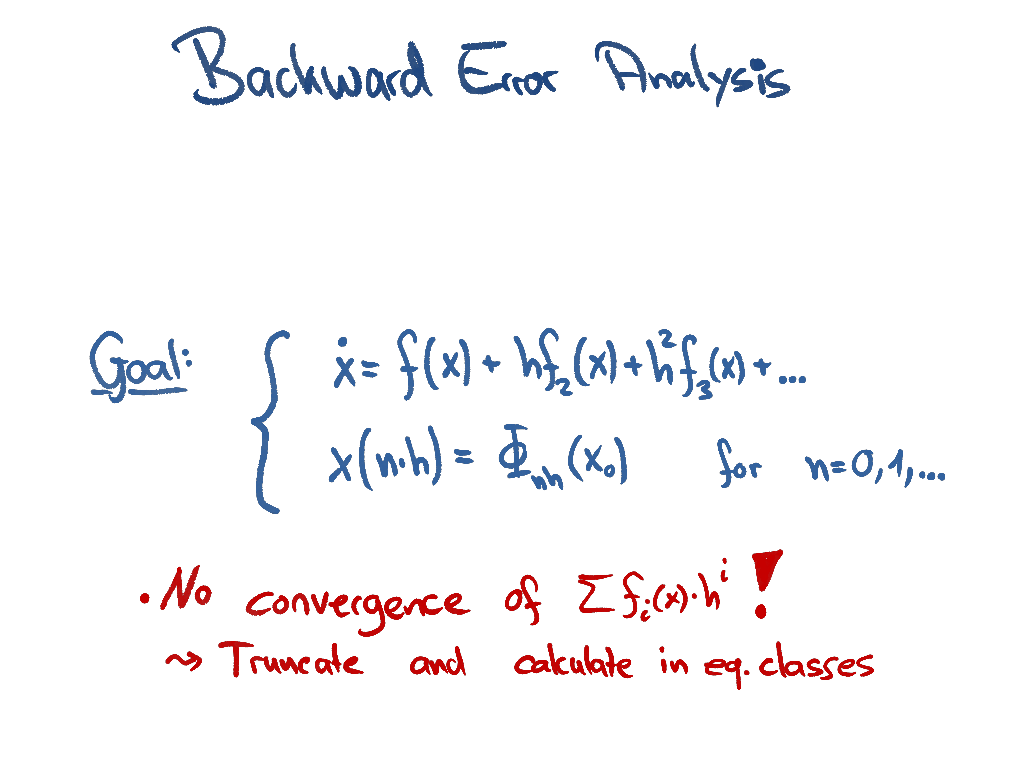 Backward Error Analysis
Goal: { ẋ = f(x) + hf₂(x) + h²f₃(x) + ...
x(n·h) = Φₙₕ(x₀) for n=0,1,...
• No convergence of Σ fᵢ(x)·hⁱ !
⇝ Truncate and calculate in eq. classes